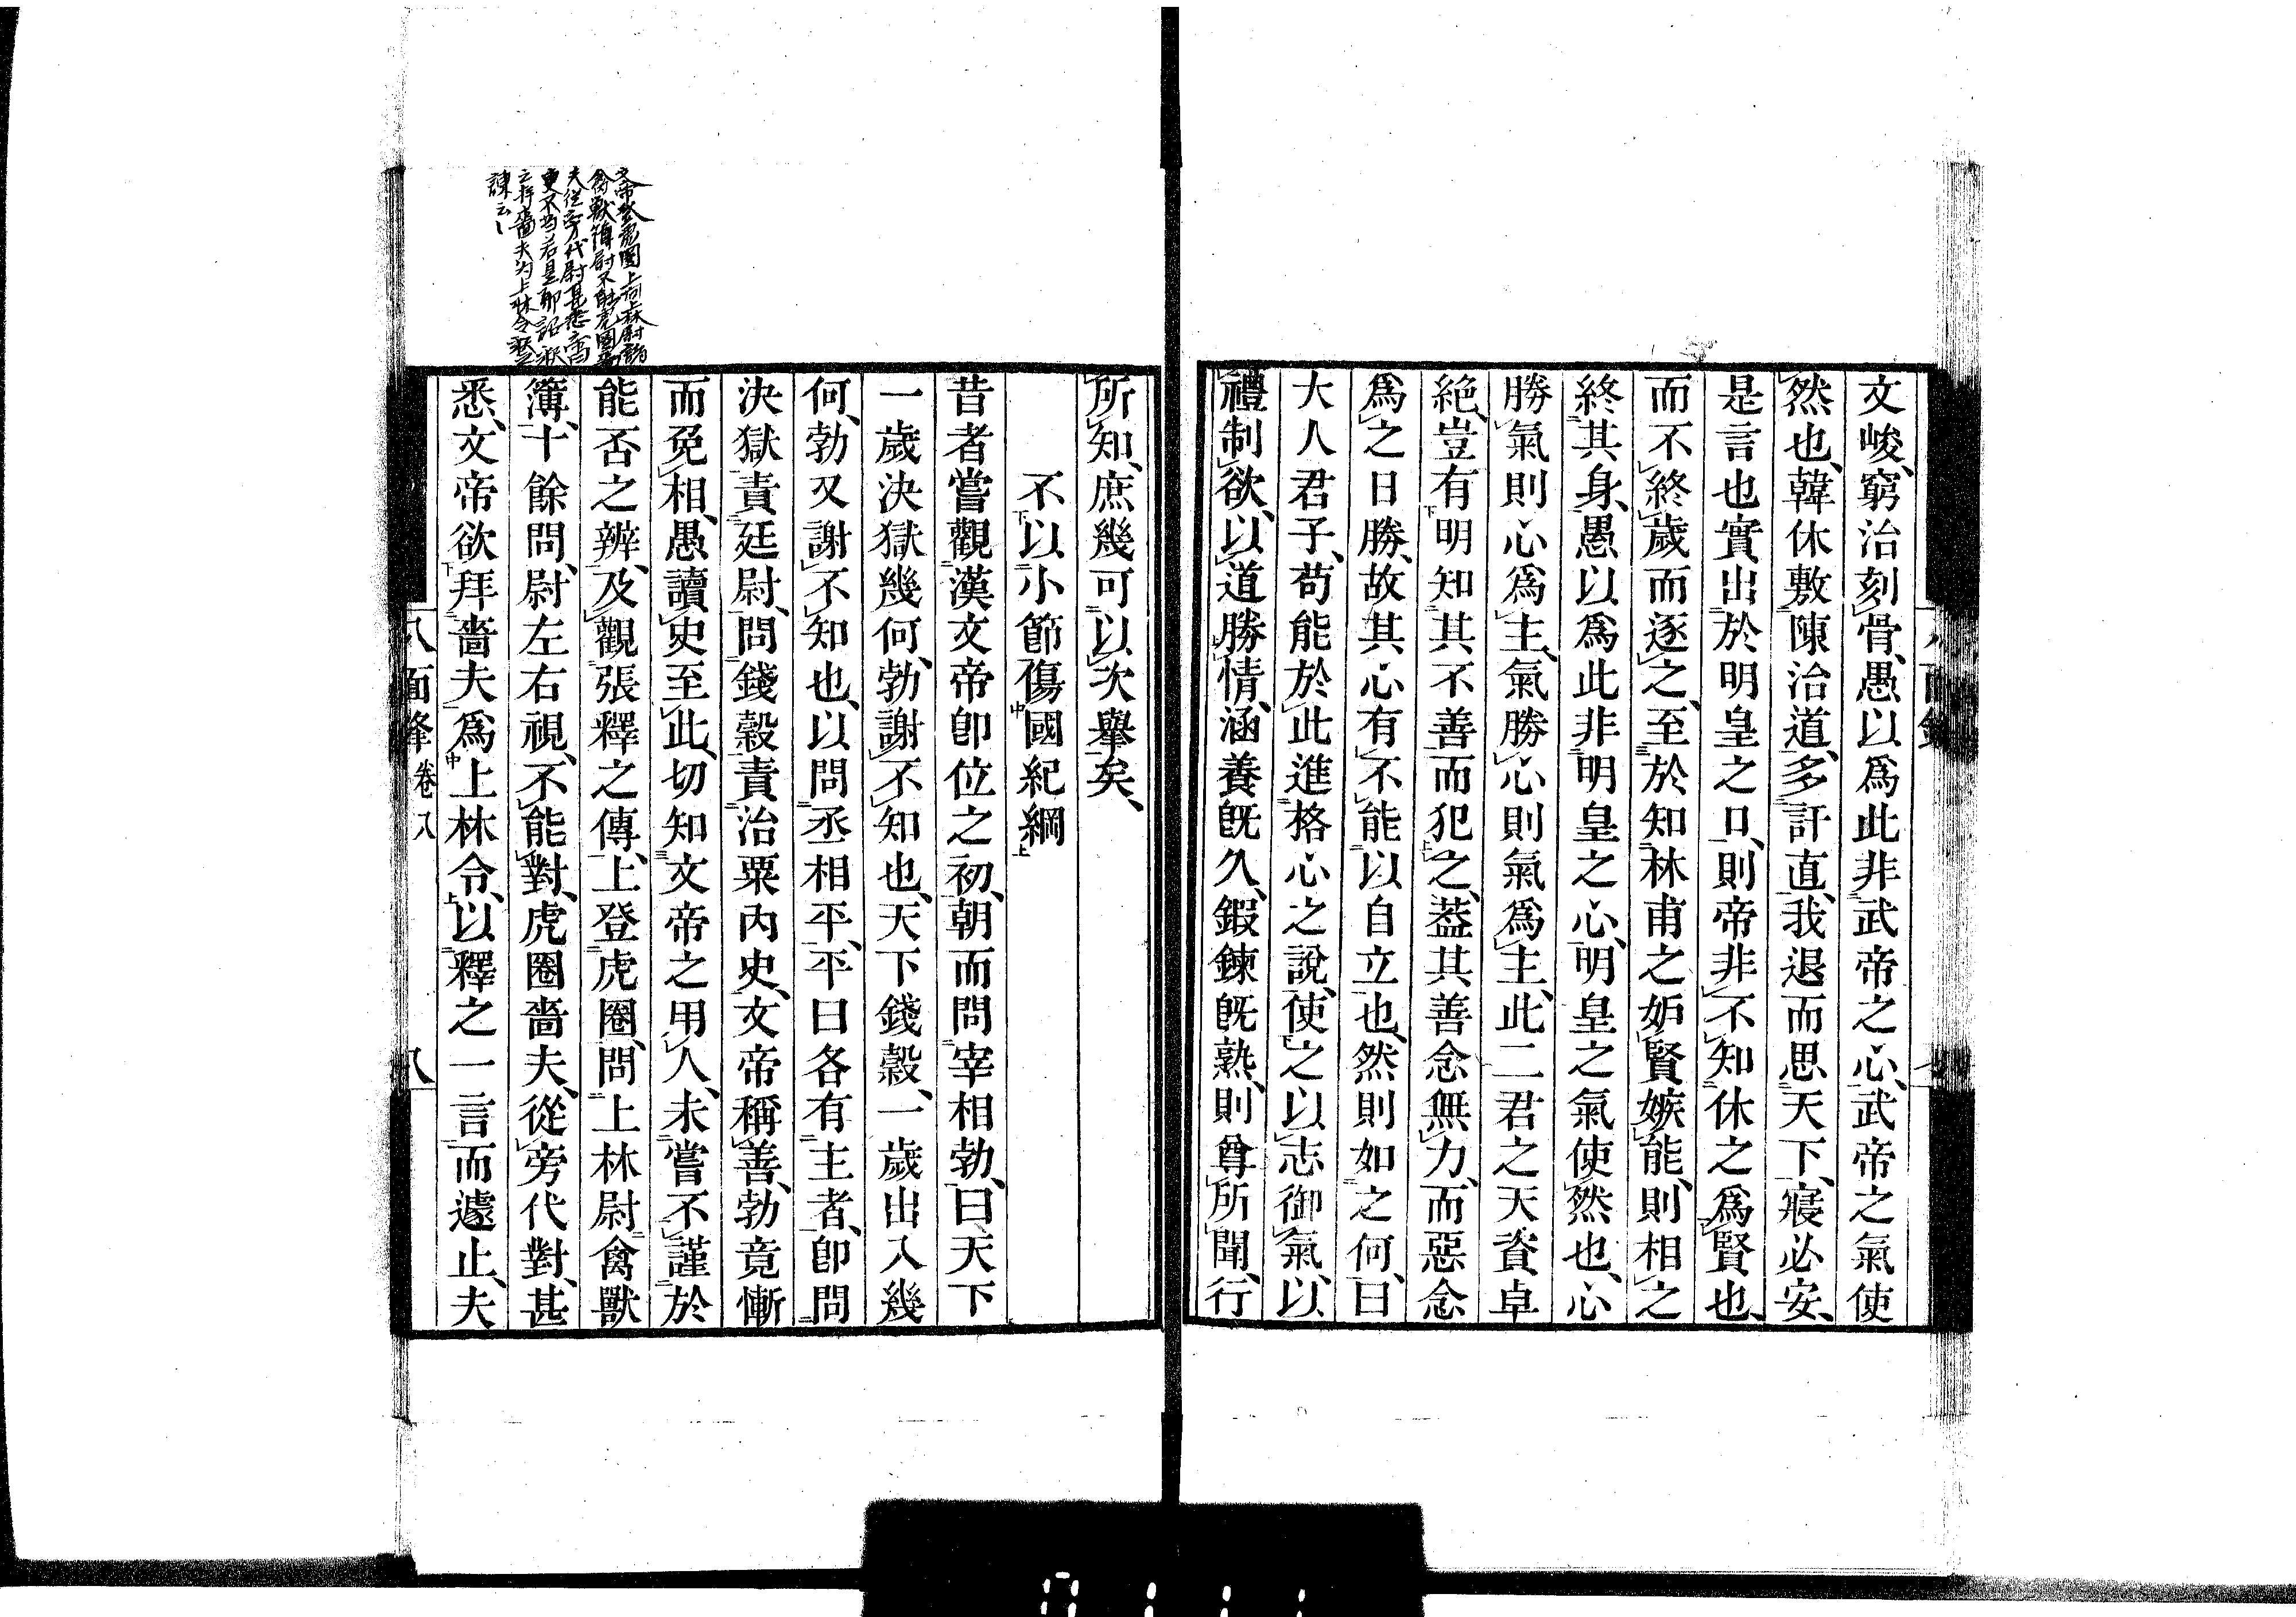 文峻、窮治刻骨、愚以爲此非武帝之心、武帝之氣使
然也、韓休敷陳治道、多訐直、我退而思天下、寢必安、
是言也實出於明皇之口、則帝非不知休之爲賢也、
而不終歲而逐之、至於知林甫之妬賢嫉能、則相之
終其身、愚以爲此非明皇之心、明皇之氣使然也、心
勝氣則心爲主、氣勝心則氣爲主、此二君之天資卓
絶、豈有明知其不善而犯之、葢其善念無力、而惡念
爲之日勝、故其心有不能以自立也、然則如之何、曰
大人君子、苟能於此進格心之說、使之以志御氣、以
禮制欲、以道勝情、涵養既久、鍜鍊既熟、則尊所聞、行
所知、庶幾可以次舉矣、
不以小節傷國紀綱
昔者嘗觀漢文帝卽位之初、朝而問宰相勃、曰、天下
一歲決獄幾何、勃謝不知也、天下錢穀、一歲出入幾
何、勃又謝不知也、以問丞相平、平曰各有主者、卽問
決獄責廷尉、問錢穀責治粟內史、文帝稱善、勃竟慚
而免相、愚讀史至此、切知文帝之用人、未嘗不謹於
能否之辨、及觀張釋之傳、上登虎圈、問上林尉禽獸
簿、十餘問、尉左右視、不能對、虎圈嗇夫、從旁代對、甚
悉、文帝欲拜嗇夫爲上林令、以釋之一言而遽止、夫
八面鋒 卷八 八
文帝登虎圈上問上林尉諸
禽獸簿尉不能虎圈嗇
夫從旁代尉甚悉帝曰
吏不当若是耶詔釈
之拝嗇夫为上林令釈之
諫云〻